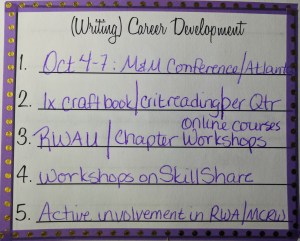 (Writing) Career Development
1. Oct 4-7: M&M Conference/Atlant
2. 1x craftbook/critreading/per Qtr
online courses
3. RWAU/Chapter Workshops
4. Workshops on SkillShare
5. Active involvement in RWA/MCRW